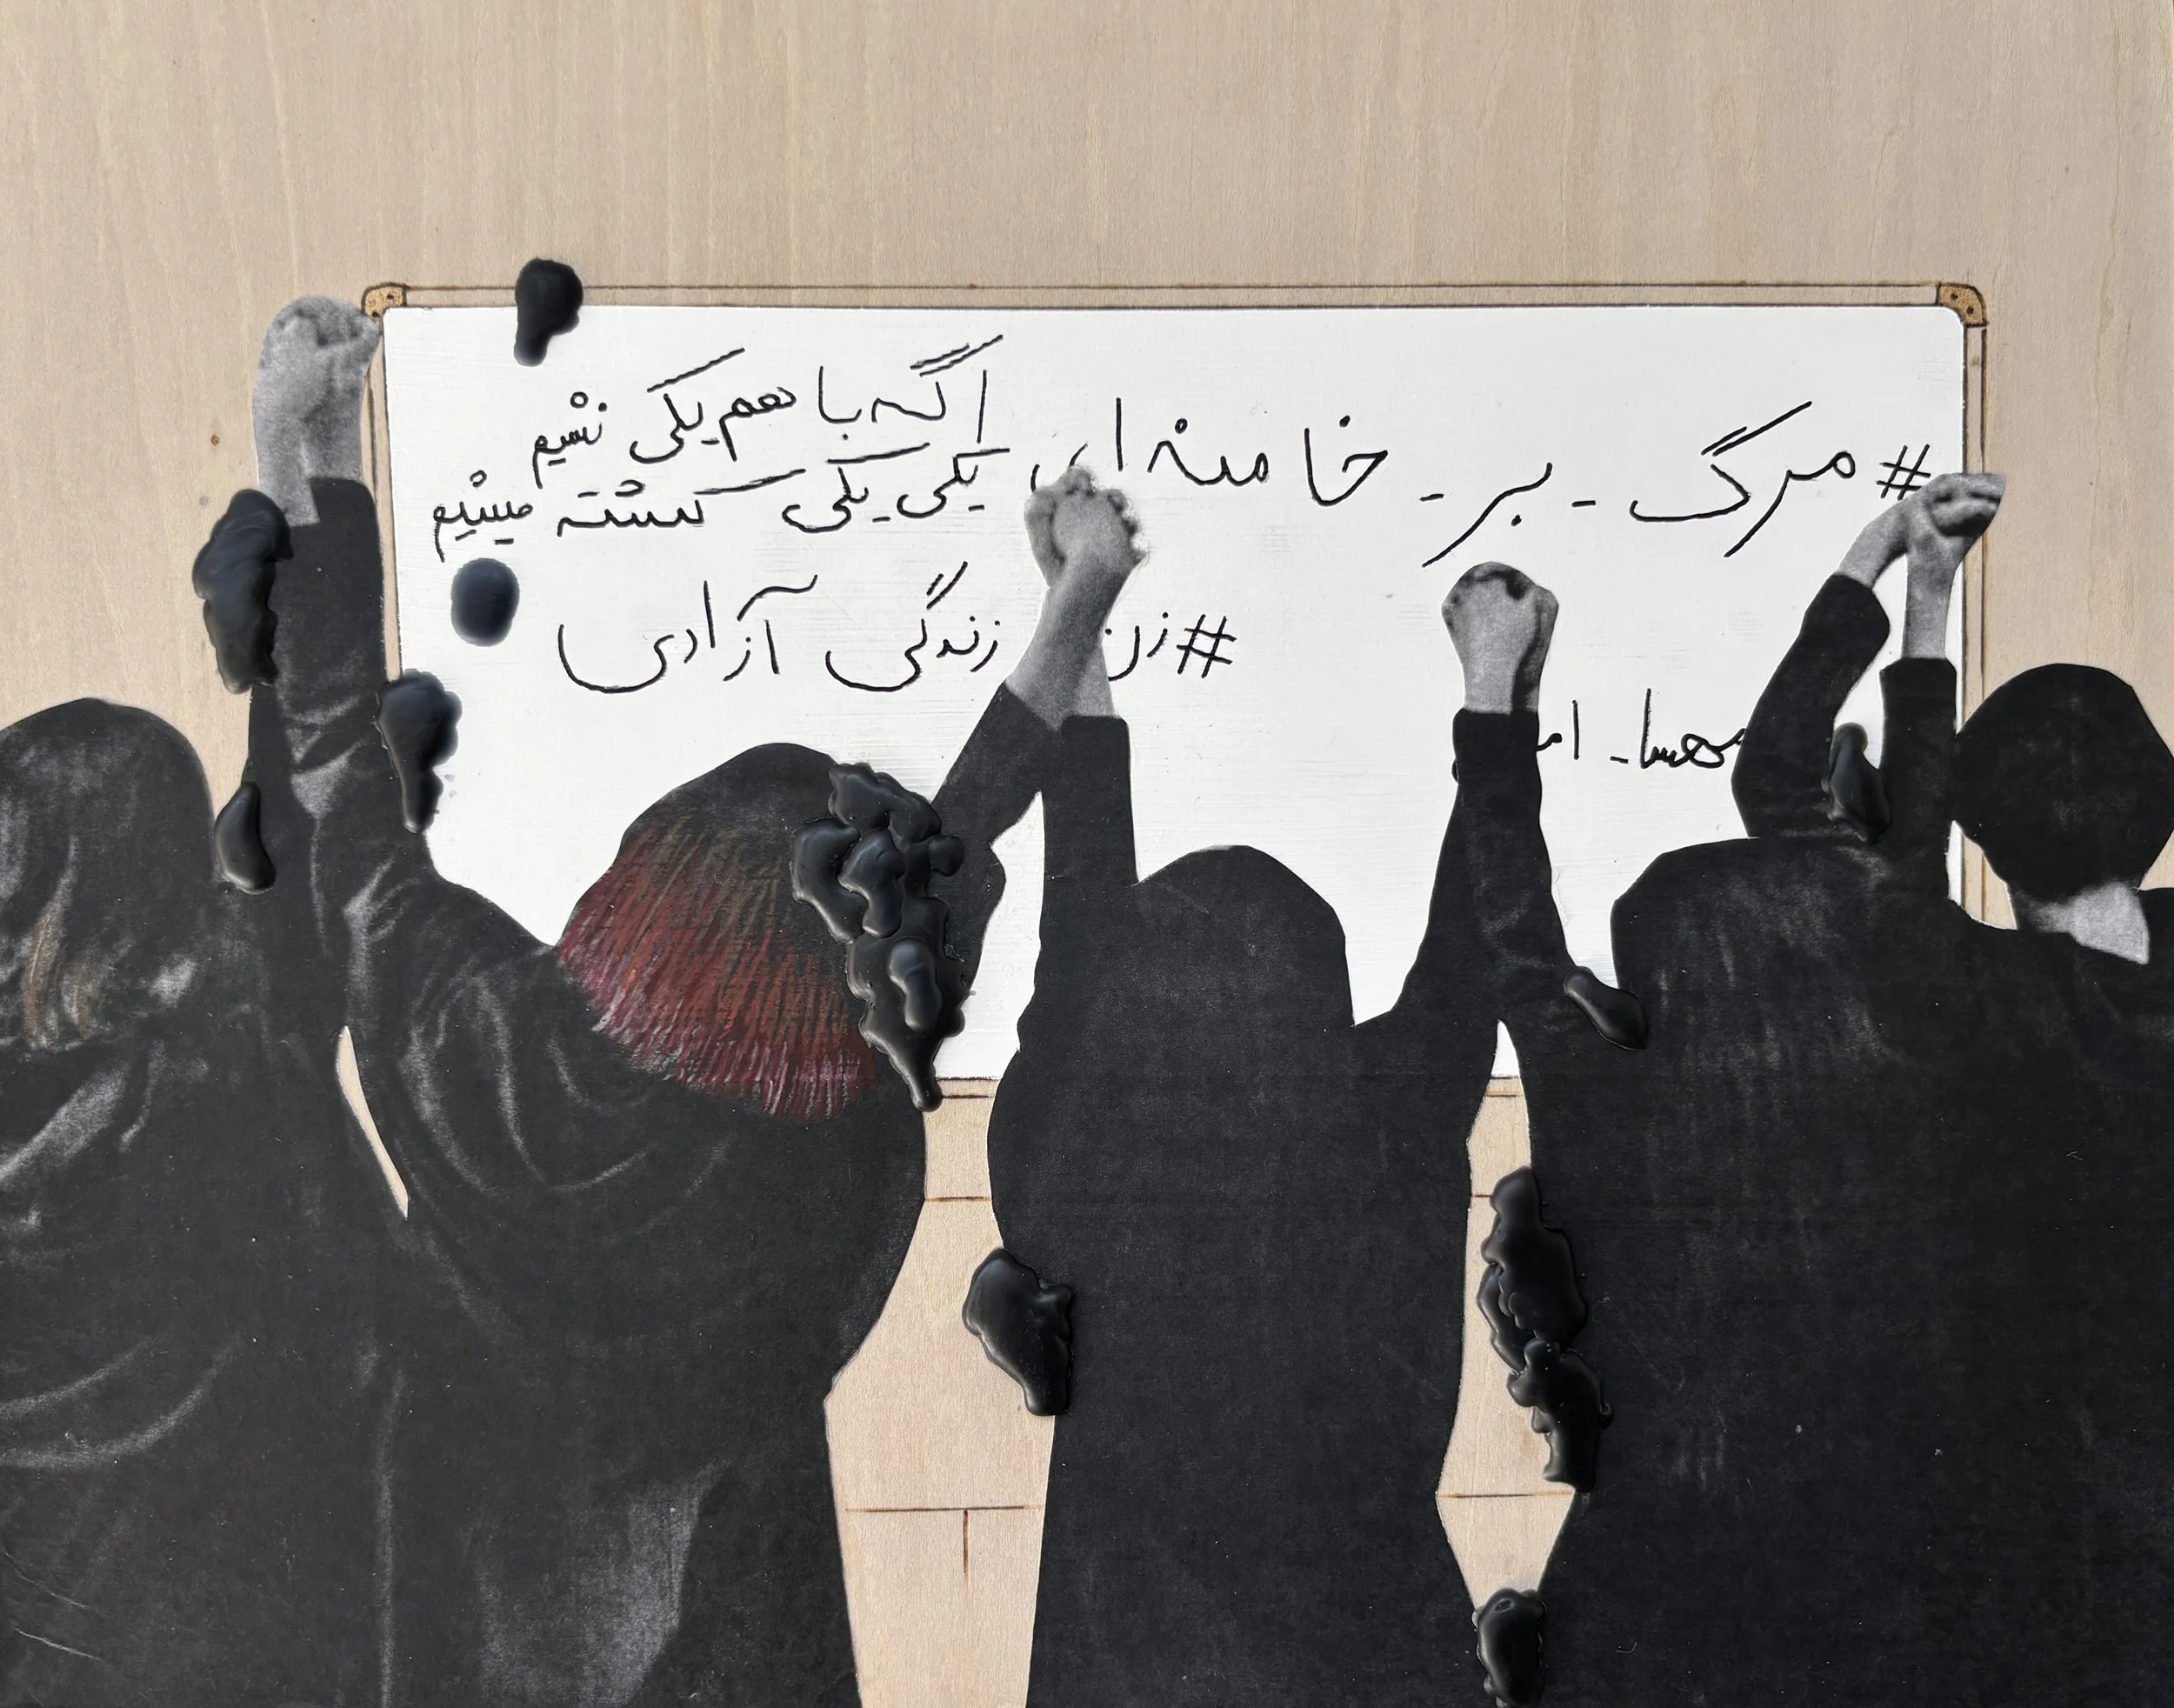 #مرگ-بر-خامنه ای
اگه با هم یکی نشیم
یکی یکی کشته میشیم
#زن زندگی آزادی
مهسا-ام